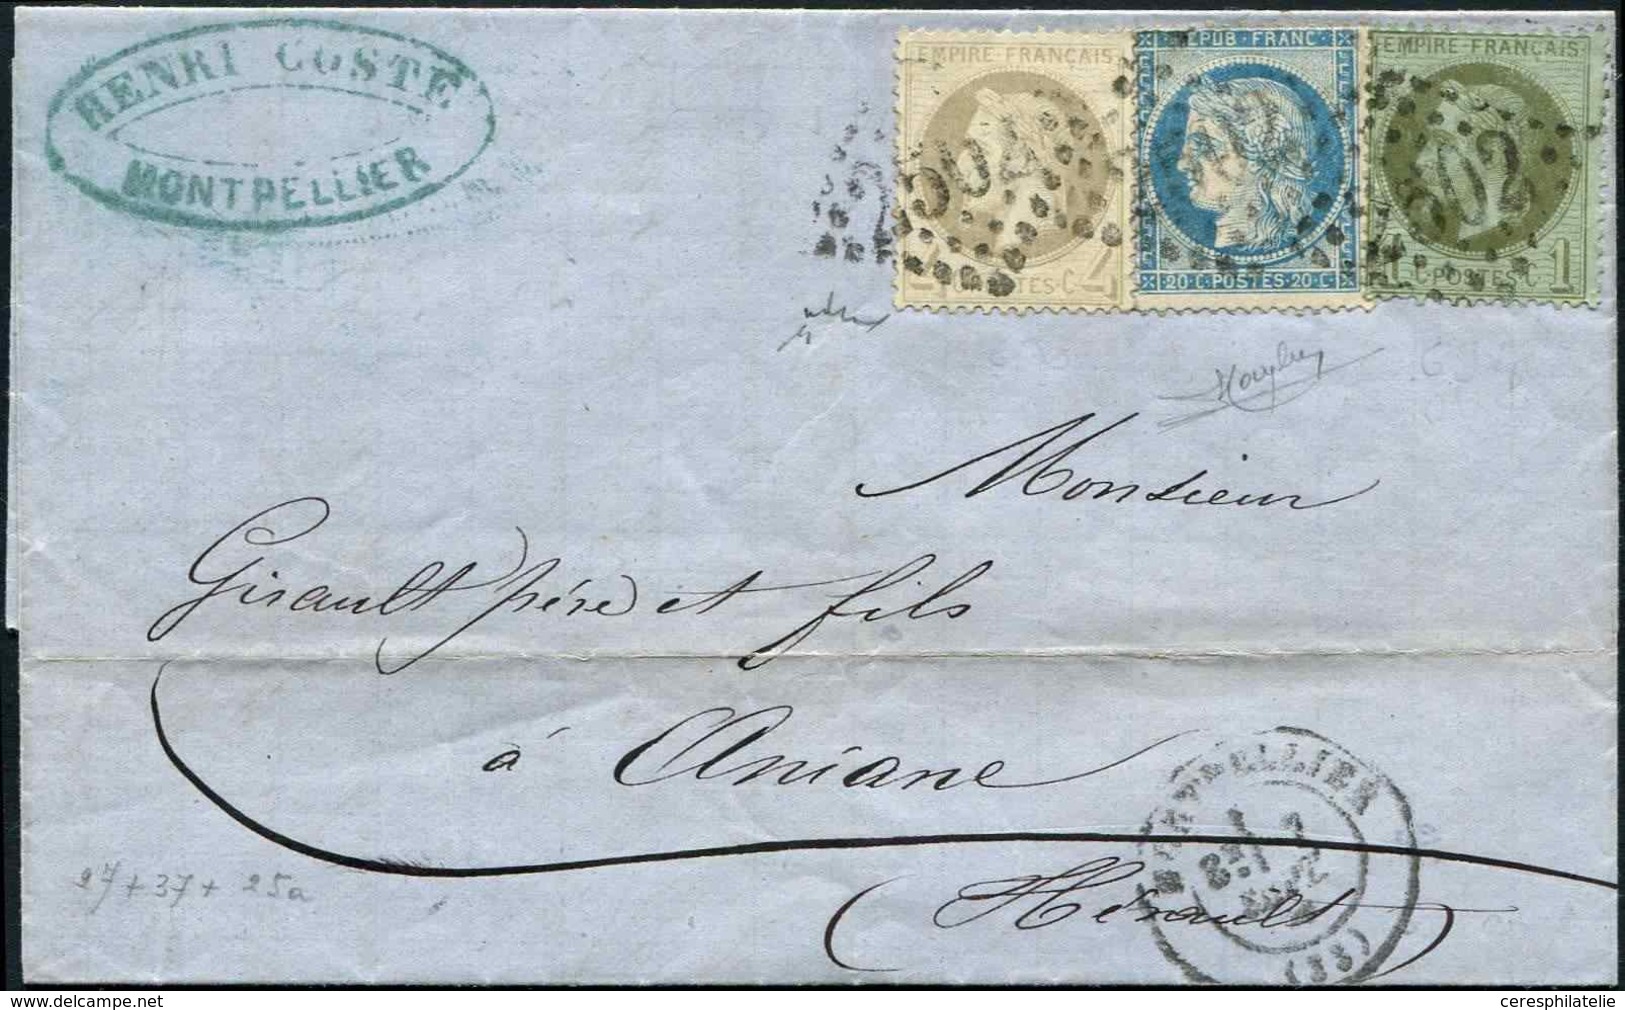 HENRI COSTE
MONTPELLIER
EMPIRE FRANÇAIS
4 POSTES C 4
REPUB FRANC
20 C POSTES 20 C
EMPIRE FRANÇAIS
1 C POSTES C 1
2502
Monsieur
Girault père et fils
à Aniane
(Hérault)
MONTPELLIER
(33)
27 + 37 + 25a
ceresphilatelie